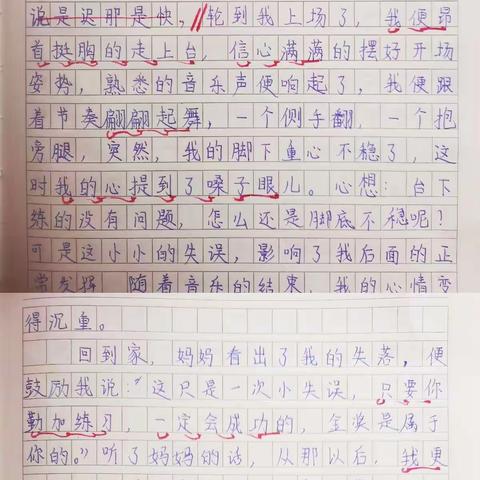 说是迟那是快，轮到我上场了，我便昂
首挺胸的走上台，信心满满的摆好开场
姿势，熟悉的音乐声便响起了，我便跟
着节奏翩翩起舞，一个侧手翻，一个抱
旁腿，突然，我的脚下重心不稳了，这
时我的心提到了嗓子眼儿。心想：台下
练的没有问题，怎么还是脚底不稳呢？
可是这小小的失误，影响了我后面的正
常发挥，随着音乐的结束，我的心情变
得沉重。
回到家，妈妈看出了我的失落，便
鼓励我说：“这只是一次小失误，只要你
勤加练习，一定会成功的，金奖是属于
你的。”听了妈妈的话，从那以后，我更